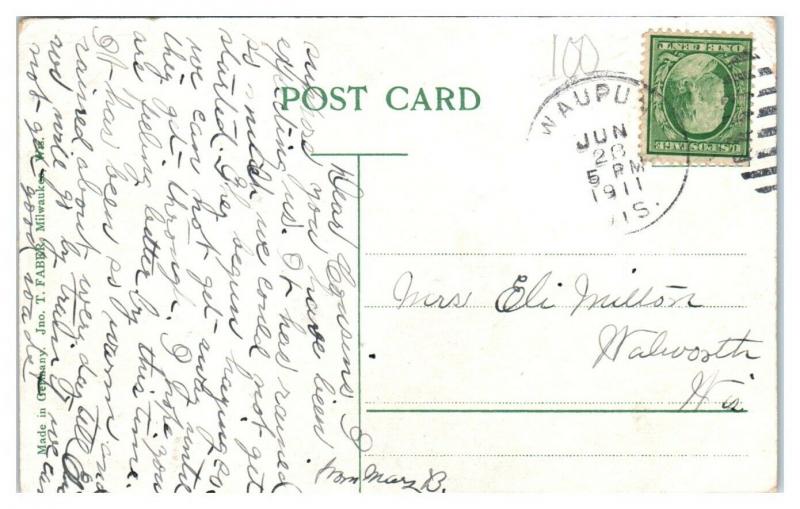 100
POST CARD
WAUPUN
JUN
28
5 PM
1911
WIS.
ONE CENT
U.S. POSTAGE
Mrs Eli Milton
Walworth
Wis
Dear Cousins I
suppose you have been
expecting us. It has rained
so much we could not get
started. I've begun haying so
we can not get away until
they get through. I hope you
are feeling better by this time.
It has been so warm and
rained about every day till
not go by train if we can
not get good roads
from Mary B.
Made in Germany. Jno. T. FABER, Milwaukee, Wis.